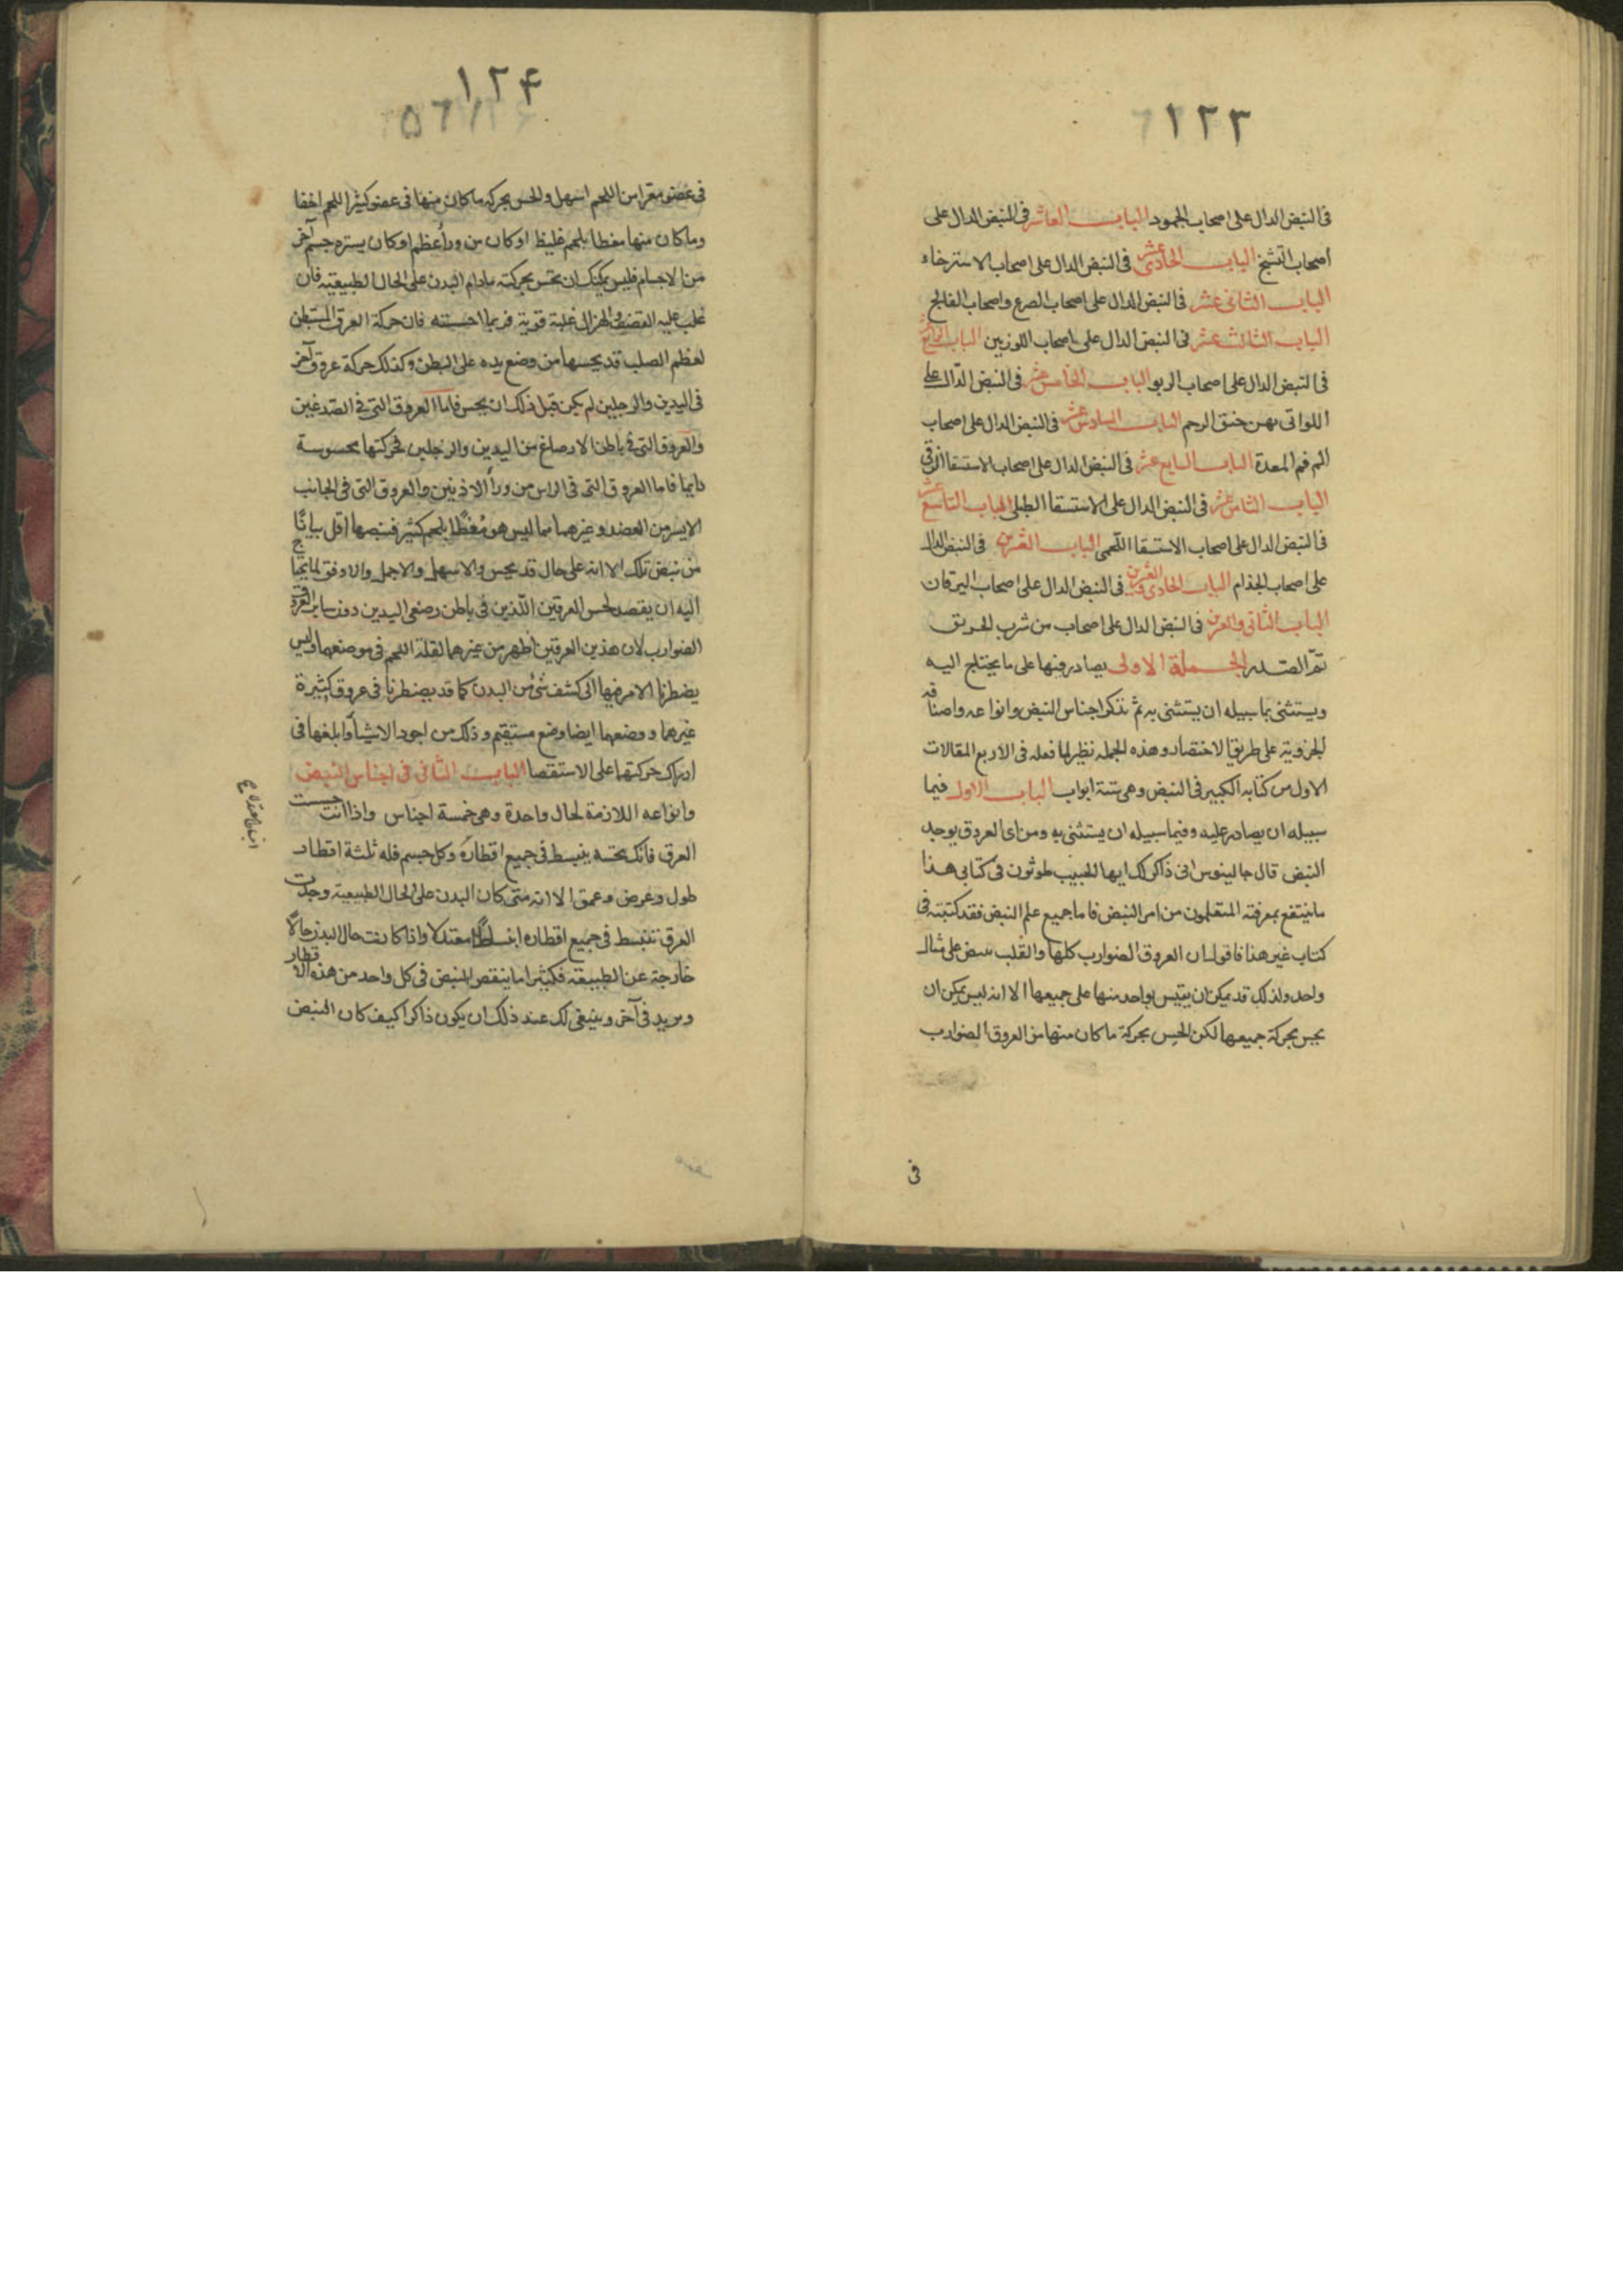 ١٢٣
فى النبض الدال على اصحاب الجمود الباب العاشر فى النبض الدال على
اصحاب التشنج الباب الحادى عشر فى النبض الدال على اصحاب الاسترخاء
الباب الثانى عشر فى النبض الدال على اصحاب الصرع واصحاب الفالج
الباب الثالث عشر فى النبض الدال على اصحاب اللوزتين الباب الرابع عشر
فى النبض الدال على اصحاب الربو الباب الخامس عشر فى النبض الدال على
اللواتى بهن خنق الرحم الباب السادس عشر فى النبض الدال على اصحاب
الم فم المعدة الباب السابع عشر فى النبض الدال على اصحاب الاستسقا الزقى
الباب الثامن عشر فى النبض الدال على الاستسقا الطبلى الباب التاسع عشر
فى النبض الدال على اصحاب الاستسقا اللحمى الباب العشرين فى النبض الدال
على اصحاب الجذام الباب الحادى والعشرين فى النبض الدال على اصحاب اليرقان
الباب الثانى والعشرين فى النبض الدال على اصحاب من شرب الخربق
تم الصدر الجملة الاولى يصادر فيها على ما يحتاج اليه
ويستثنى بما سبيله ان يستثنى به ثم نذكر اجناس النبض وانواعه واصنافه
الجزوية على طريق الاختصار وهذه الجمله نظير لما فعله فى الاربع المقالات
الاول من كتابه الكبير فى النبض وهى ستة ابواب الباب الاول فيما
سبيله ان يصادر عليه وفيما سبيله ان يستثنى به ومن اى العروق يوجد
النبض قال جالينوس انى ذاكر لك ايها الحبيب طوثرون فى كتابى هذا
ما ينتفع بمعرفته المتعلمون من امر النبض فاما جميع علم النبض فقد كتبته فى
كتاب غير هذا فاقول ان العروق الضوارب كلها والقلب ينبض على مثال
واحد ولذلك قد يمكن ان يقيس بواحد منها على جميعها الا انه ليس يمكن ان
يحس بحركة جميعها لكن الحس بحركة ما كان منها من العروق الضوارب
فى
١٢۴
٥٦
فى عضو معرا من اللحم اسهل والحس بحركة ما كان منها فى عضو كثير اللحم اخفا
وما كان منها مغطا بلحم غليظ او كان من ورأ عظم او كان يستره جسم آخر
من الاجسام فليس يمكنك ان تحس بحركته ما دام البدن على الحال الطبيعية فان
غلب عليه القضف والهزال غلبة قوية فربما احسسته فان حركة العرق المستبطن
لعظم الصلب قد يحسها من وضع يده على البطن وكذلك حركة عروق آخر
فى اليدين والرجلين لم يكن قبل ذلك ان يحس فاما العروق التى فى الصدغين
والعروق التى فى باطن الارصاغ من اليدين والرجلين فحركتها محسوسة
دايما فاما العروق التى فى الراس من ورأ الاذنين والعروق التى فى الجانب
الايسر من العضد وغيرهما مما ليس هو مغطًا بلحم كثير فنبضها اقل بيانًا
من نبض تلك الا انه على حال قد يحس والاسهل والاجمل والاوفق لما يحتاج
اليه ان يقصد لحس العرقين اللذين فى باطن رصغى اليدين دون ساير العروق
الضوارب لان هذين العرقين اظهر من غيرهما لقلة اللحم فى موضعهما وليس
يضطرنا الامر فيها الى كشف شئ من البدن كما قد يضطرنا فى عروق كثيرة
غيرها ووضعهما ايضا وضع مستقيم وذلك من اجود الاشيأ وابلغها فى
ادراك حركتها على الاستقصا الباب الثانى فى اجناس النبض
وانواعه اللازمة لحال واحدة وهى خمسة اجناس واذا انت جسست
العرق فانك تحسه ينبسط فى جميع اقطاره وكل جسم فله ثلثة اقطار
طول وعرض وعمق الا انه متى كان البدن على الحال الطبيعية وجدت
العرق تنبسط فى جميع اقطاره انبساطًا معتدلا واذا كانت حال البدن حالًا
خارجة عن الطبيعة فكثيرا ما ينقص النبض فى كل واحد من هذه الاقطار
ويزيد فى آخر وينبغى لك عند ذلك ان يكون ذاكرا كيف كان النبض